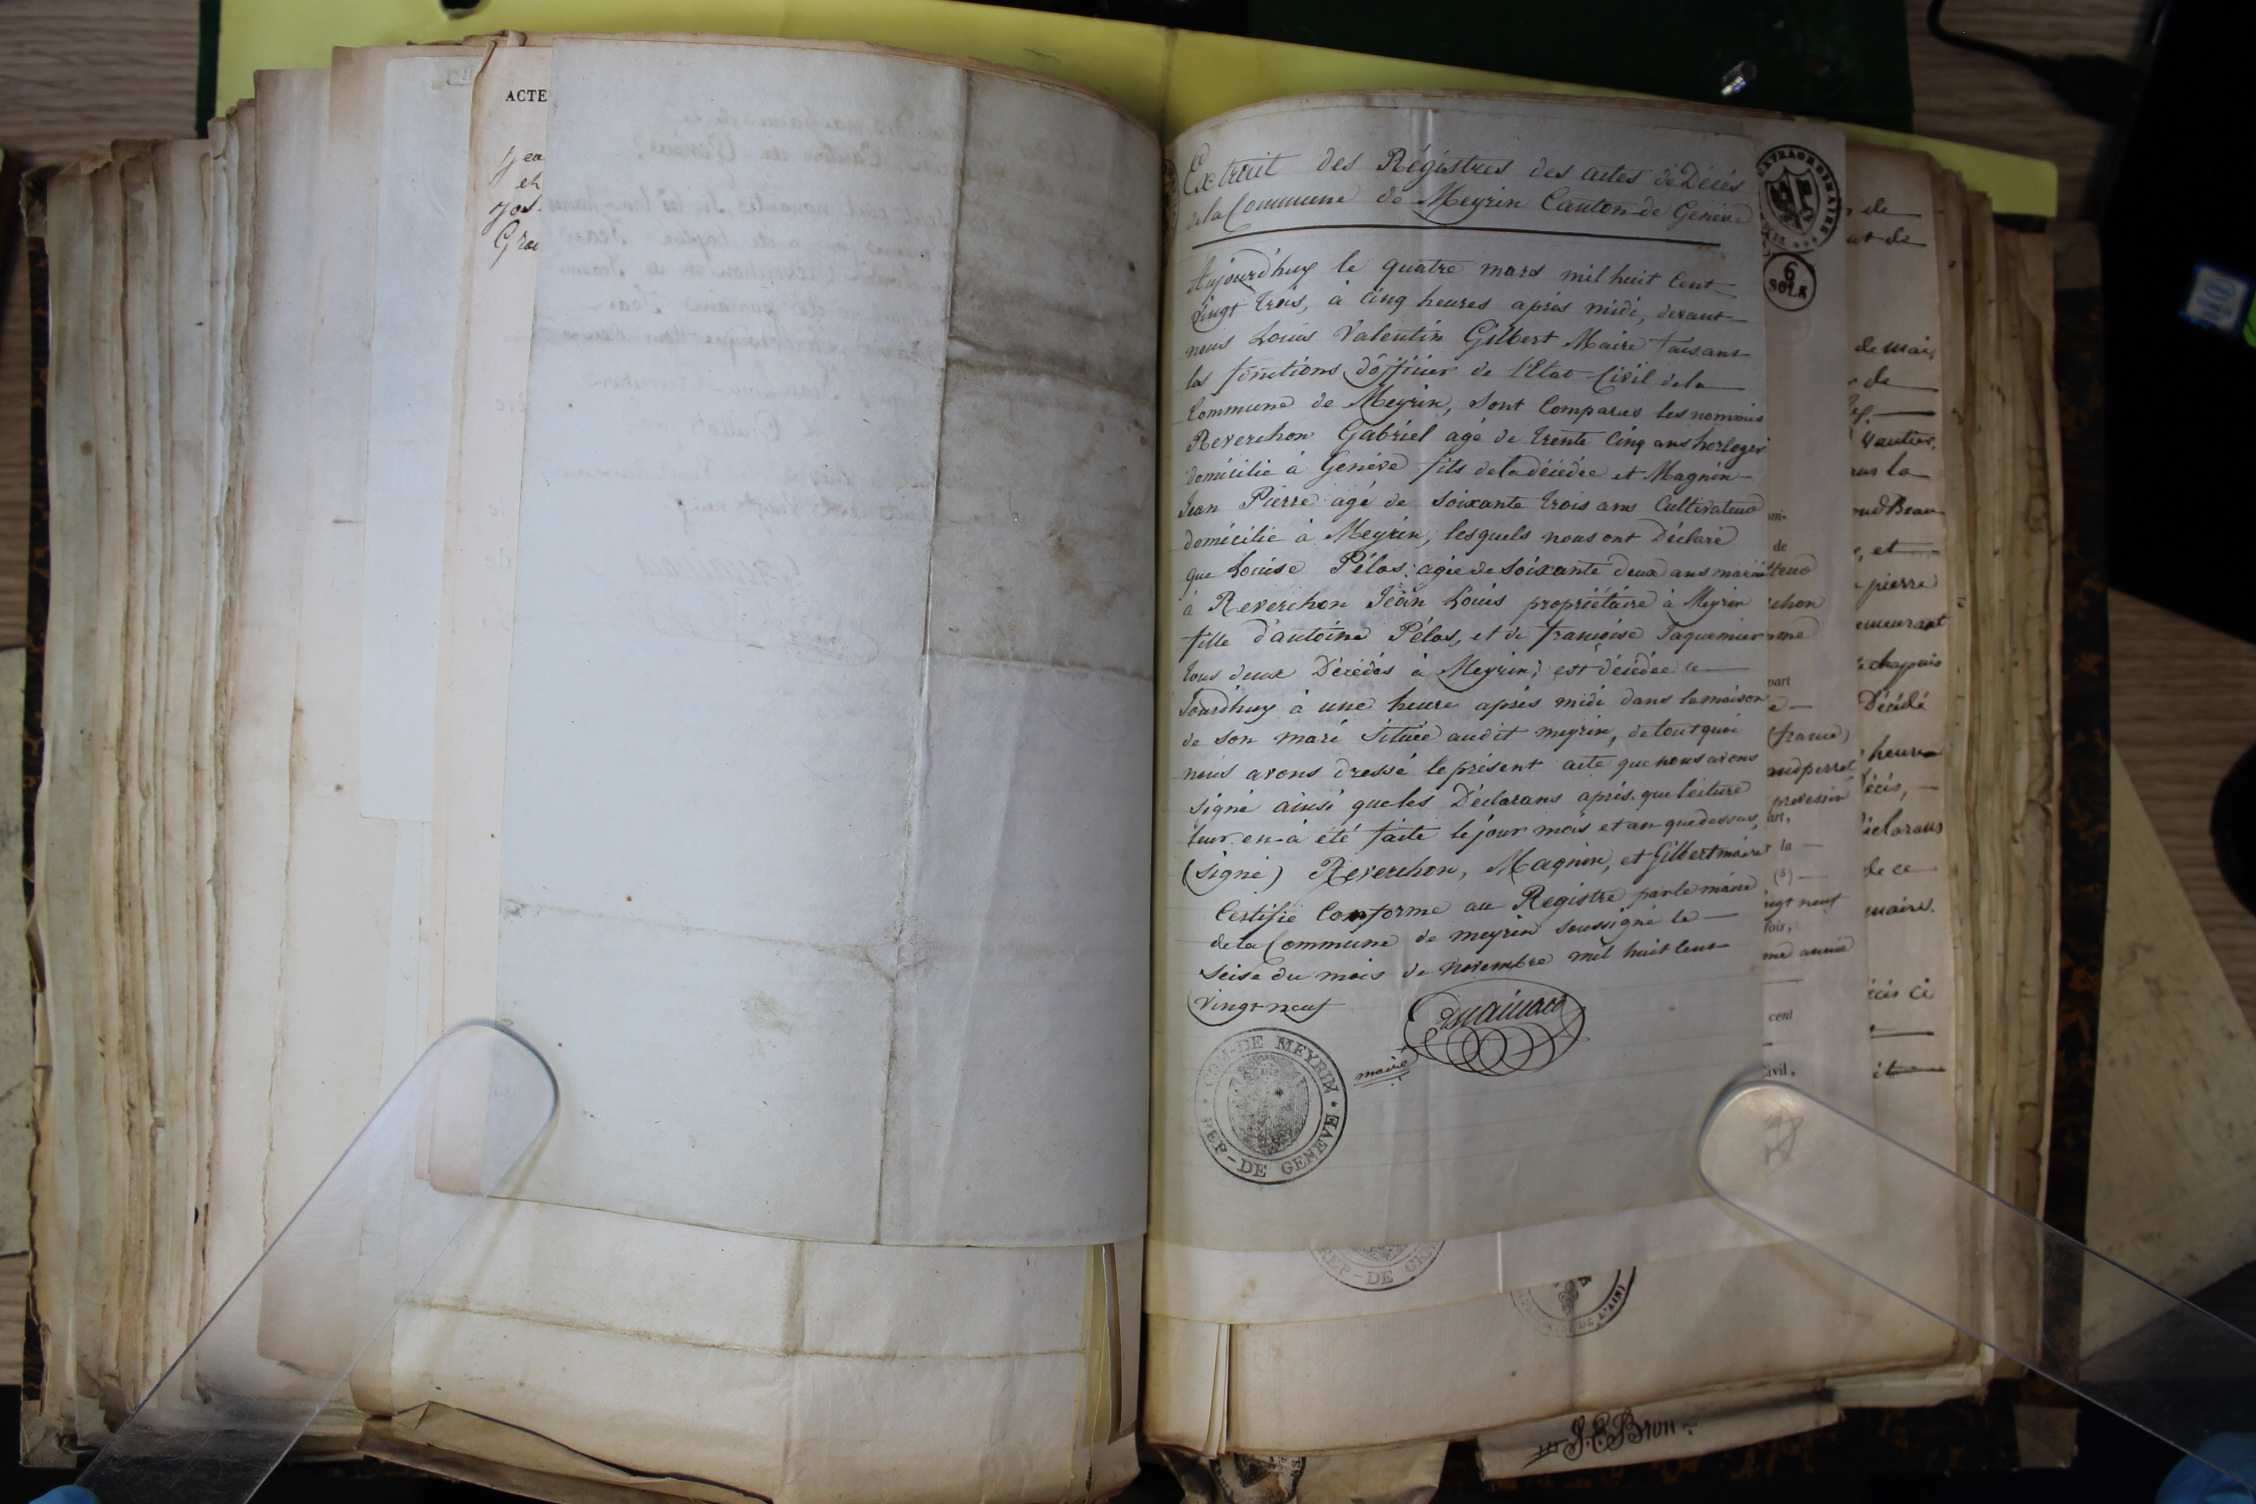 ACTE
Jea
et
Jos.
Gra
Extrait des Régistres des actes de Décés
de la Commune de Meyrin Canton de Genève
Aujourd'huy le quatre mars mil huit Cent
vingt trois, à Cinq heures après midi, devant
nous Louis Valentin Gilbert Maire faisant
les fonctions d'officier de l'Etat Civil de la
Commune de Meyrin, sont Comparus les nommés
Reverchon Gabriel agé de trente Cinq ans horloger
domicilié à Genève fils de la décédée et Magnin
Jean Pierre agé de soixante trois ans Cultivateur
domicilié à Meyrin, lesquels nous ont Déclaré
que Louise Pélas, agée de soixante deux ans mariée
à Reverchon Jean Louis propriétaire à Meyrin
fille d'antoine Pélas, et de françoise Jaquemier
tous deux Décédés à Meyrin, est décédée ce
Jourd'huy à une heure après midi dans la maison
de son mari située audit meyrin, de tout quoi
nous avons dressé le présent acte que nous avons
signé ainsi que les Déclarans après que lecture
leur en à été faite le jour mois et an que dessus,
(signé) Reverchon, Magnin, et Gilbert maire
Certifié Conforme au Registre par le maire
de la Commune de meyrin soussigné le
seise du mois de novembre mil huit Cent
vingt neuf
maire
COM-DE MEYRIN * REP-DE GENEVE *
EXTRAORDINAIRE
6
SOLS
de
de mai
de
Vautier,
la
et
pierre
chapuis
Décédé
heure
Déclarans
de ce
maire.
de
part
(france)
profession
la
(s)
vingt neuf
cent
civil,
REP-DE
J. E. Bron